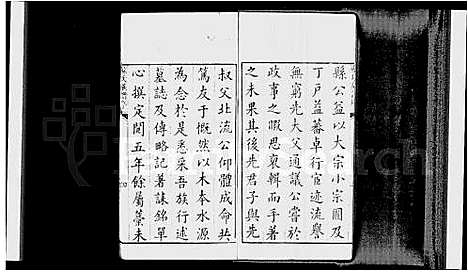 縣公益以大宗小宗圖及
丁戶益蕃卓行宦迹流譽
無窮先大父通議公嘗於
政事之暇思裒輯而手著
之未果其後先君子與先
叔父北流公仰體成命共
篤友于慨然以木本水源
為念於是悉采吾族行述
墓誌及傳略記著誄銘單
心撰定閱五年餘屬藁未